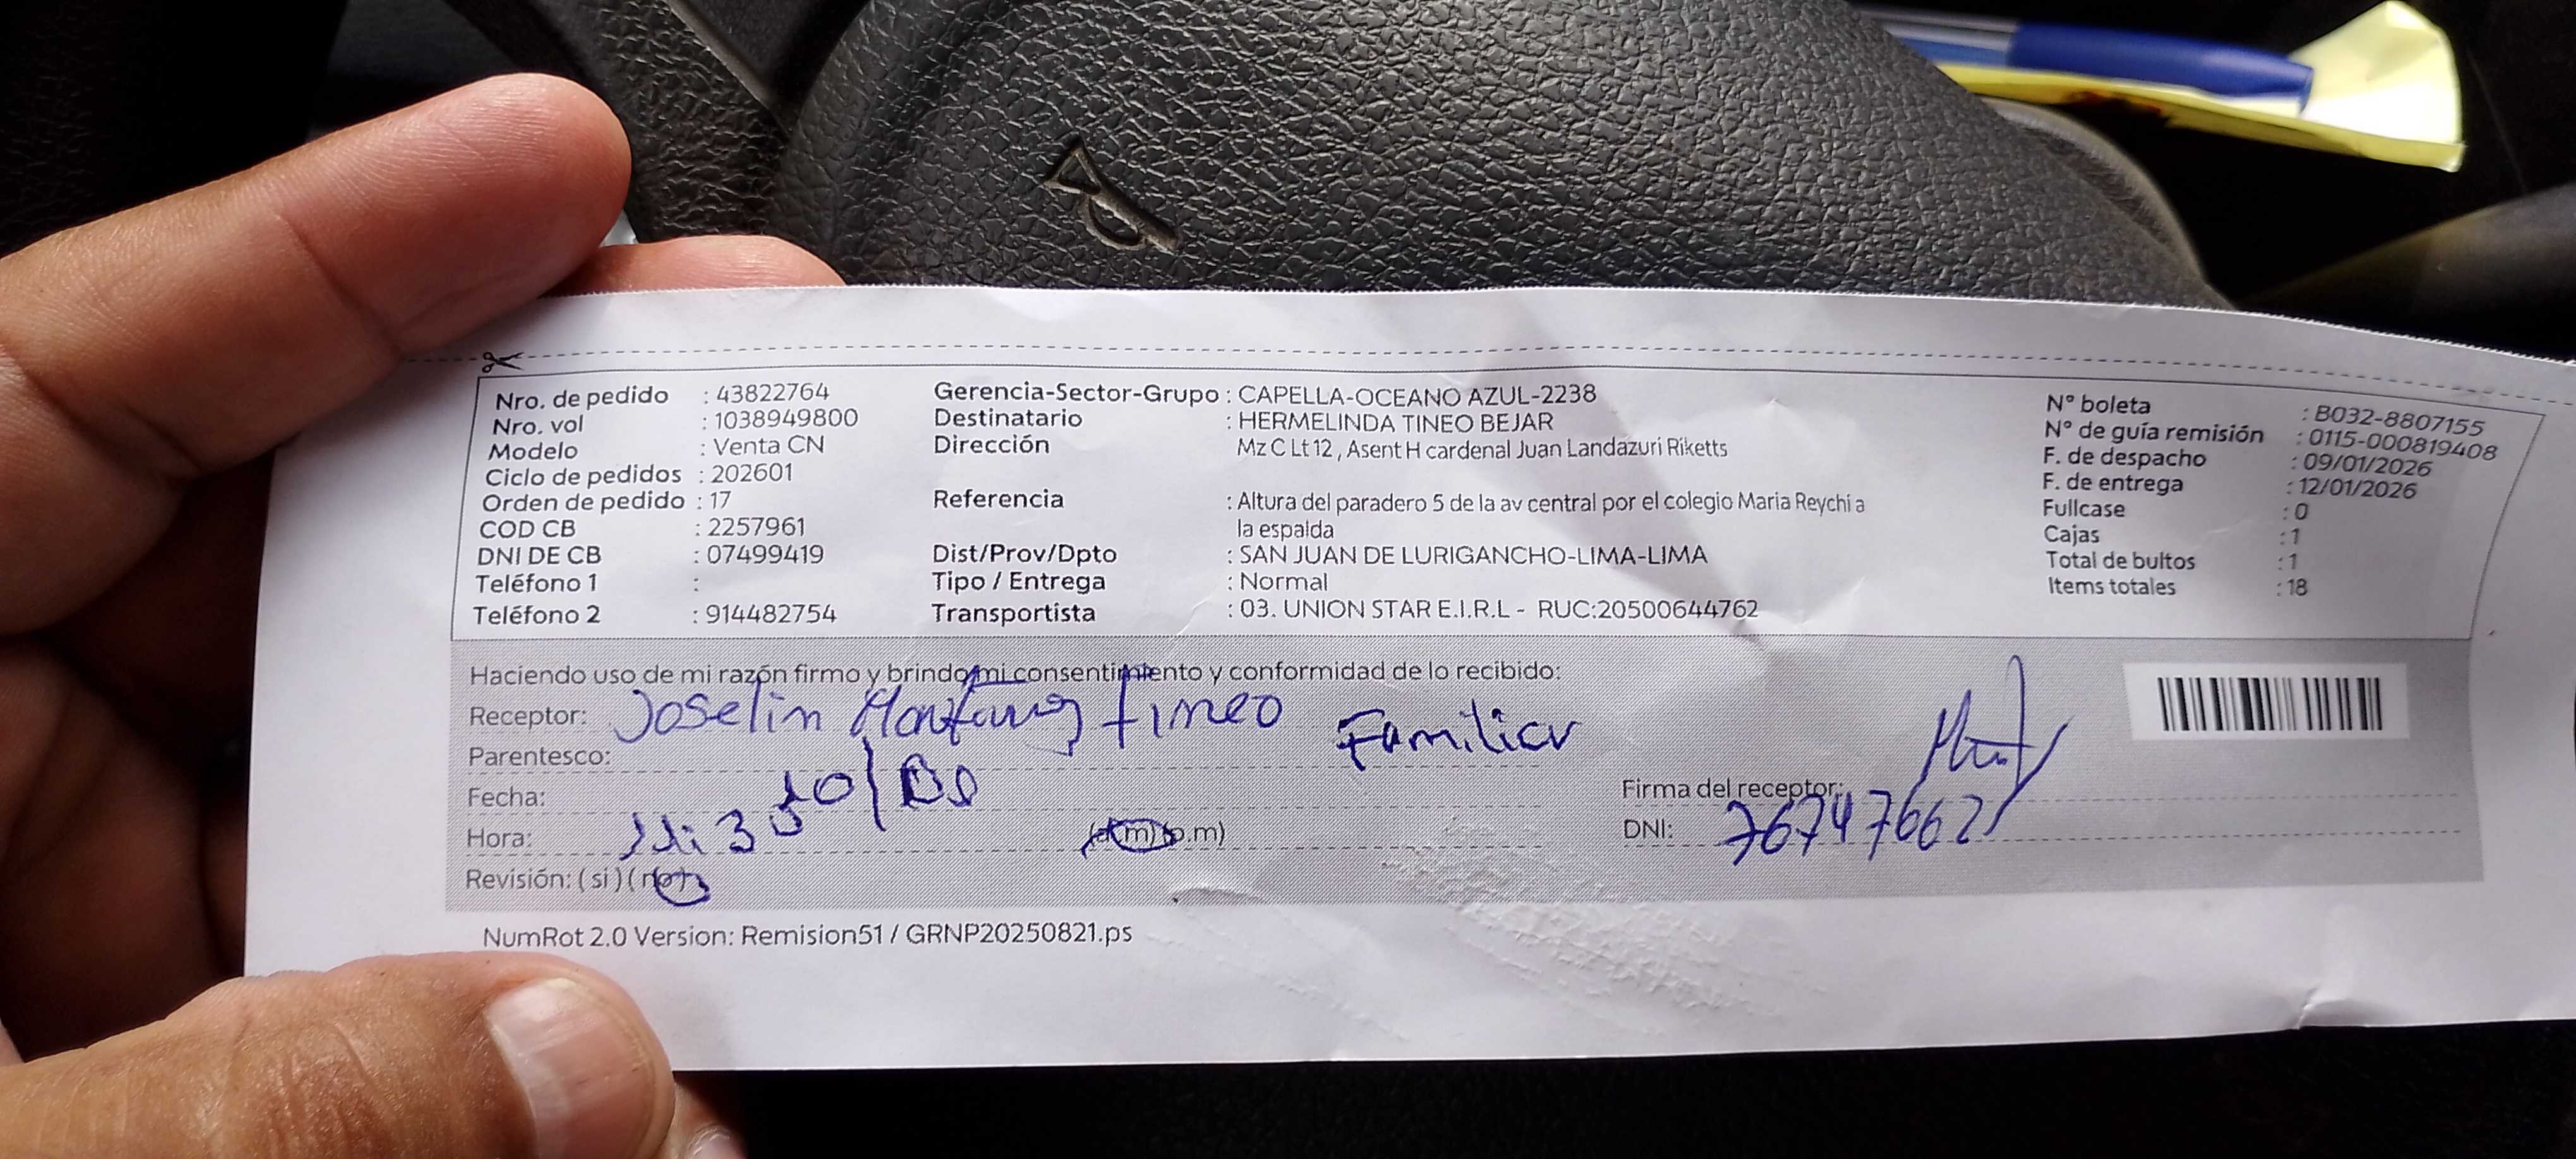 Nro. de pedido : 43822764
Nro. vol : 1038949800
Modelo : Venta CN
Ciclo de pedidos : 202601
Orden de pedido : 17
COD CB : 2257961
DNI DE CB : 07499419
Teléfono 1 :
Teléfono 2 : 914482754
Gerencia-Sector-Grupo : CAPELLA-OCEANO AZUL-2238
Destinatario : HERMELINDA TINEO BEJAR
Dirección Mz C Lt 12 , Asent H cardenal Juan Landazuri Riketts
Referencia : Altura del paradero 5 de la av central por el colegio Maria Reychi a
la espalda
Dist/Prov/Dpto : SAN JUAN DE LURIGANCHO-LIMA-LIMA
Tipo / Entrega : Normal
Transportista : 03. UNION STAR E.I.R.L - RUC:20500644762
N° boleta : B032-8807155
N° de guía remisión : 0115-000819408
F. de despacho : 09/01/2026
F. de entrega : 12/01/2026
Fullcase : 0
Cajas : 1
Total de bultos : 1
Items totales : 18
Haciendo uso de mi razón firmo y brindo mi consentimiento y conformidad de lo recibido:
Receptor: Joselin tineo
Parentesco: Familiar
Fecha:
Hora: (a.m) (p.m)
Revisión: ( si ) ( no )
Firma del receptor:
DNI:
NumRot 2.0 Version: Remision51 / GRNP20250821.ps